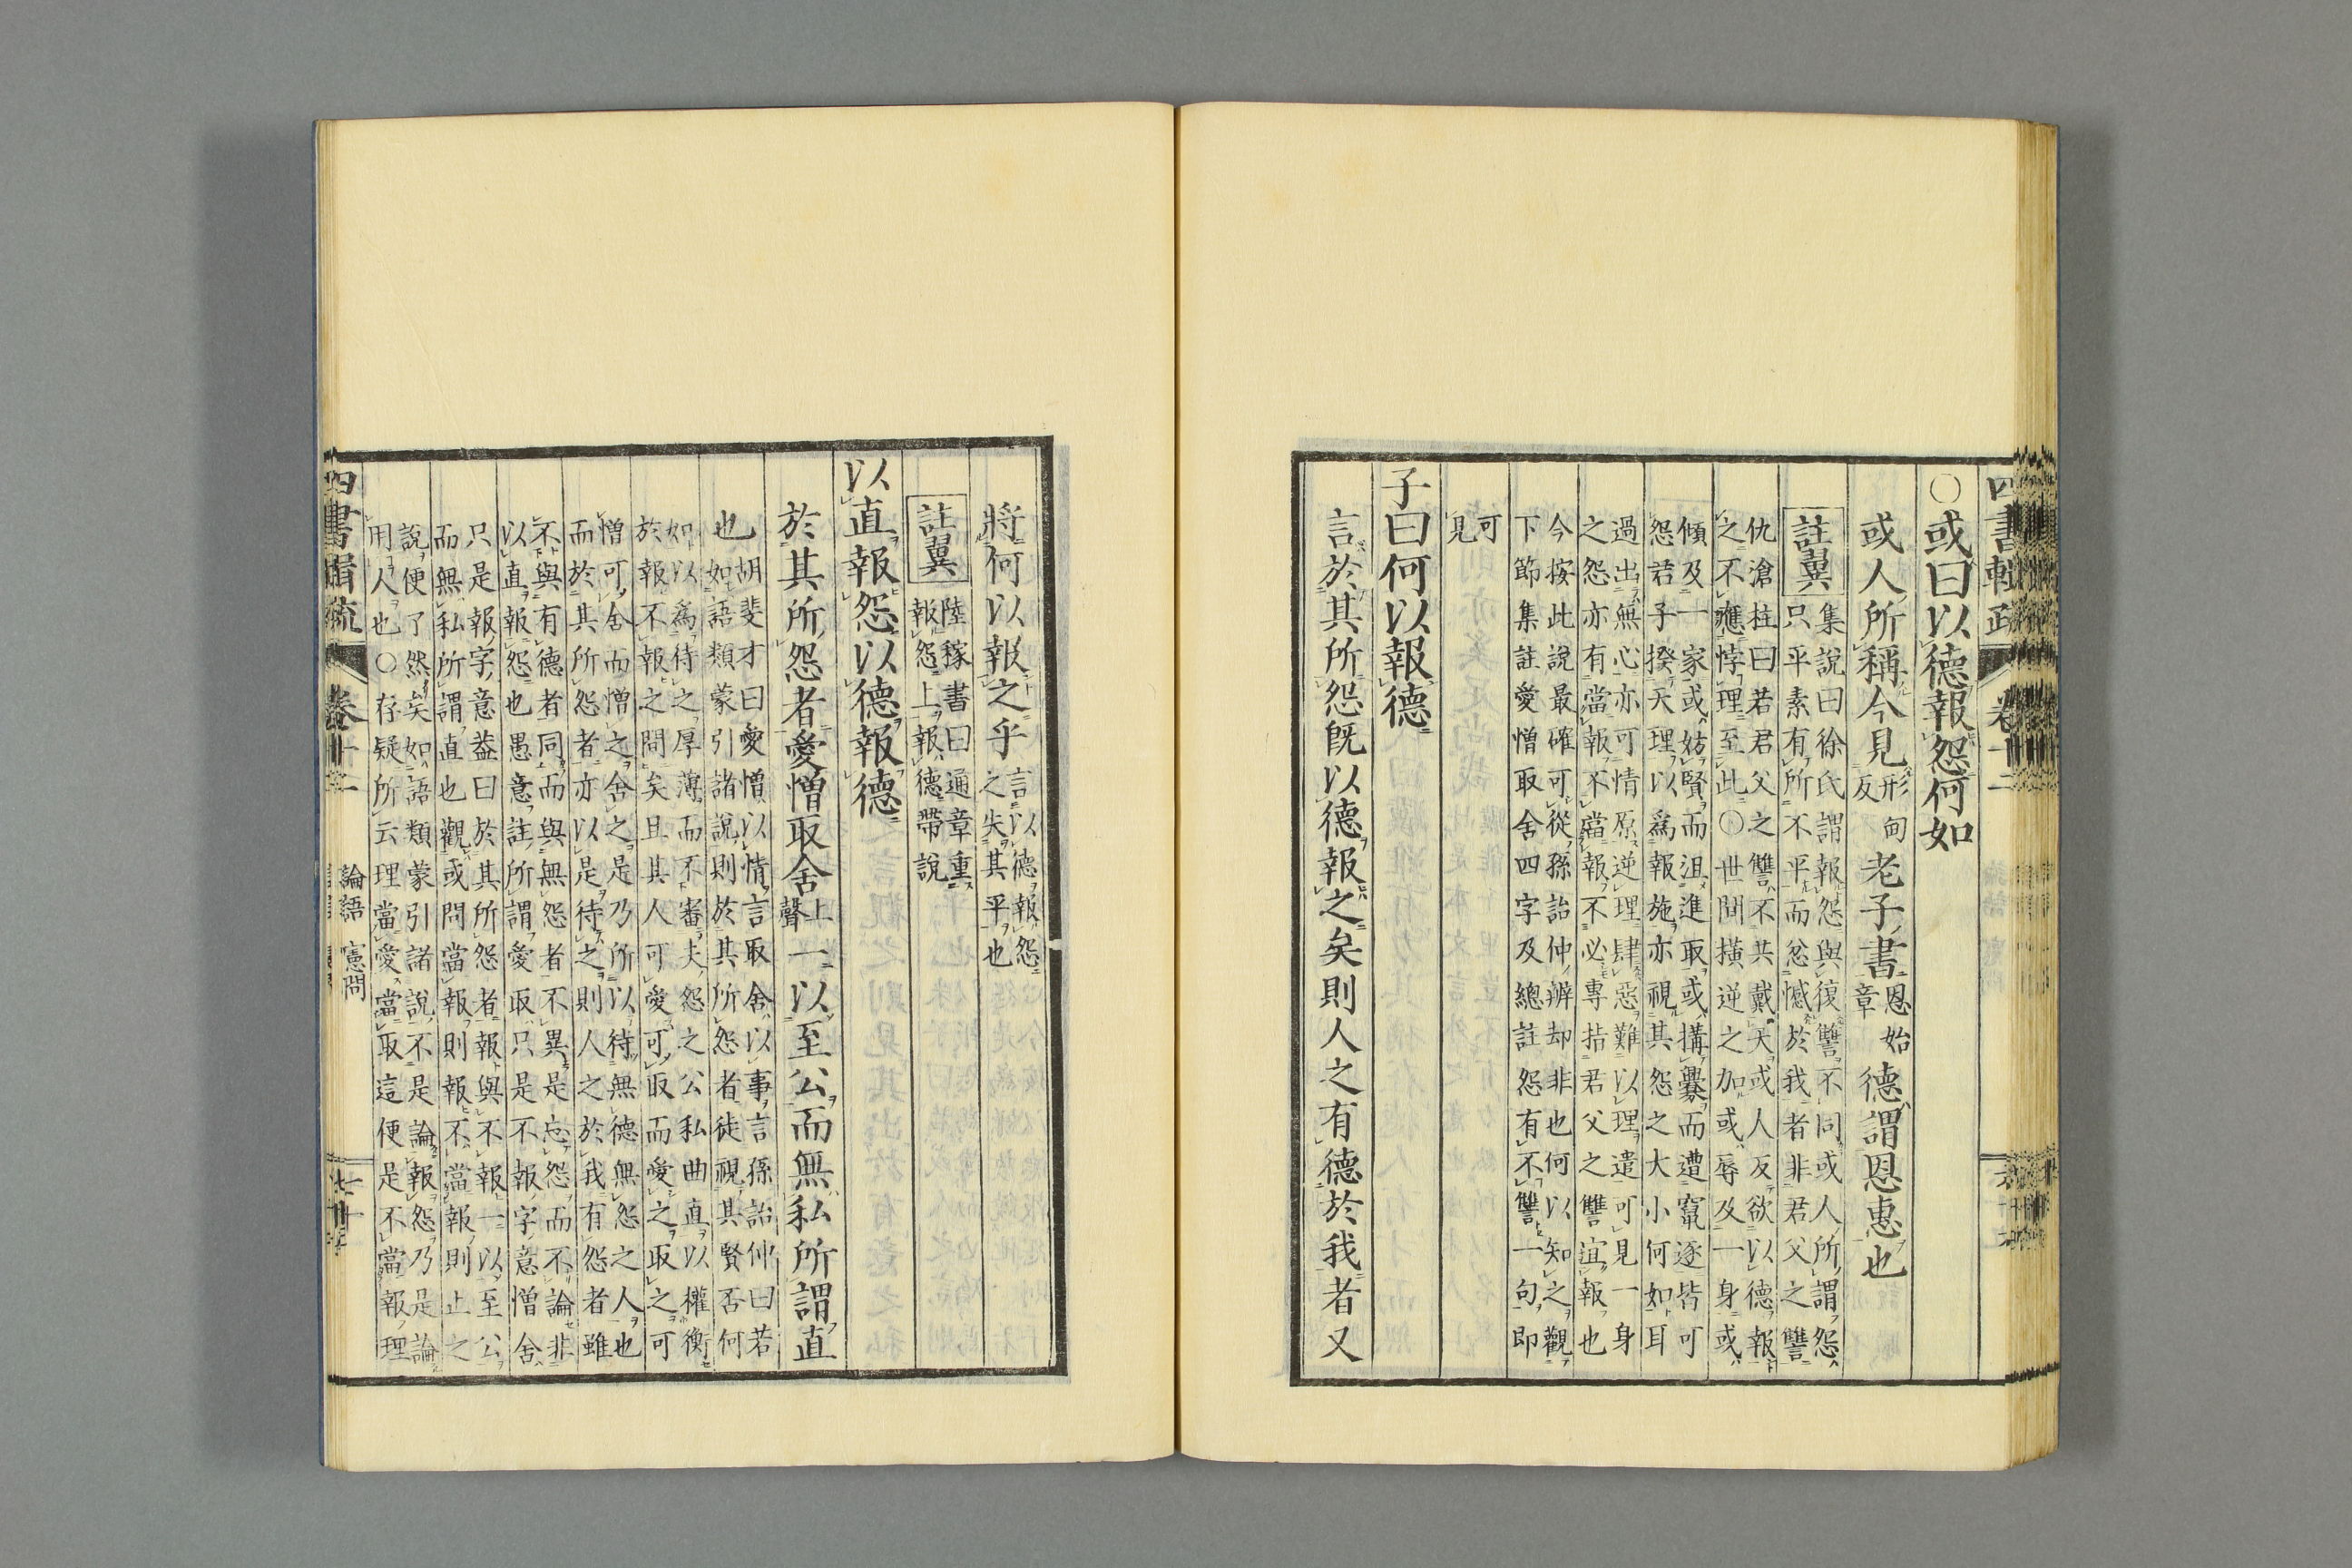 四書輯疏 卷十二
○或曰以德報怨何如
或人所稱今見形甸反老子書恩始章德謂恩惠也
註翼 集說曰徐氏謂報怨與復讐不同或人所謂怨
只平素有所不平而忿憾於我者非君父之讐
仇滄柱曰若君父之讐不共戴天或人反欲以德報
之不應悖理至此○世間橫逆之加或辱及一身或
傾及一家或妨賢而沮進取或搆釁而遭竄逐皆可
怨君子揆天理以爲報施亦視其怨之大小何如耳
過出無心亦可情原逆理肆惡難以理遣可見一身
之怨亦有當報不當報不必專指君父之讐宜報也
今按此說最確可從孫詒仲辨却非也何以知之觀
下節集註愛憎取舍四字及總註怨有不讐一句即
可
見
子曰何以報德
言於其所怨既以德報之矣則人之有德於我者又
將何以報之乎言以德報怨
之失其平也
註翼 陸稼書曰通章重
報怨上報德帶說
以直報怨以德報德
於其所怨者愛憎取舍上聲一以至公而無私所謂直
也 胡斐才曰愛憎以情言取舍以事言孫詒仲曰若
如語類蒙引諸說則於其所怨者徒視其賢否何
如以爲待之厚薄而不審夫怨之公私曲直以權衡
於報不報之間矣且其人可愛可取而愛之取之可
憎可舍而憎之舍之是乃所以待無德無怨之人也
而於其所怨者亦以是待之則人之於我有怨者雖
不與有德者同而與無怨者不異是忘怨而不論非
以直報怨也愚意註所謂愛取只是不報字意憎舍
只是報字意蓋曰於其所怨者報與不報一以至公
而無私所謂直也觀或問當報則報不當報則止之
說便了然矣如語類蒙引諸說不是論報怨乃是論
用人也○存疑所云理當愛當取這便是不當報理
四書輯疏 卷十二 論語 憲問